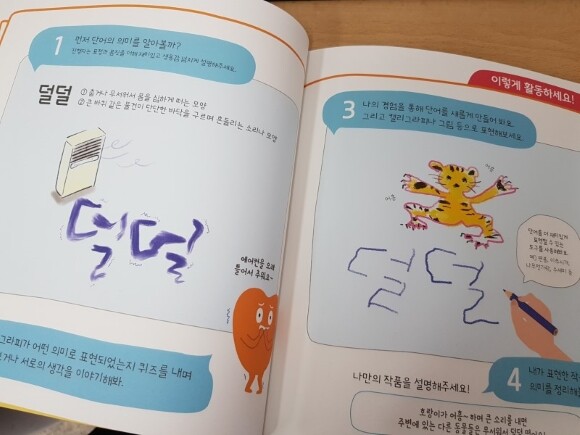 1 먼저 단어의 의미를 알아볼까?
덜덜
① 춥거나 무서워서 몸을 심하게 떠는 모양
② 큰 바퀴 같은 물건이 단단한 바닥을 구르며 흔들리는 소리나 모양
덜덜
에어컨을 오래
틀어서 추워요~
그라피가 어떤 의미로 표현되었는지 퀴즈를 내며
거나 서로의 생각을 이야기해봐.
이렇게 활동하세요!
3 나의 경험을 통해 단어를 새롭게 만들어 봐요.
그리고 캘리그라피나 그림 등으로 표현해보세요.
덜덜
나만의 작품을 설명해주세요!
4 내가 표현한 작
의미를 정리해
호랑이가 어흥~ 하며 큰 소리를 내면
주변에 있는 다른 동물들은 무서워서 덜덜